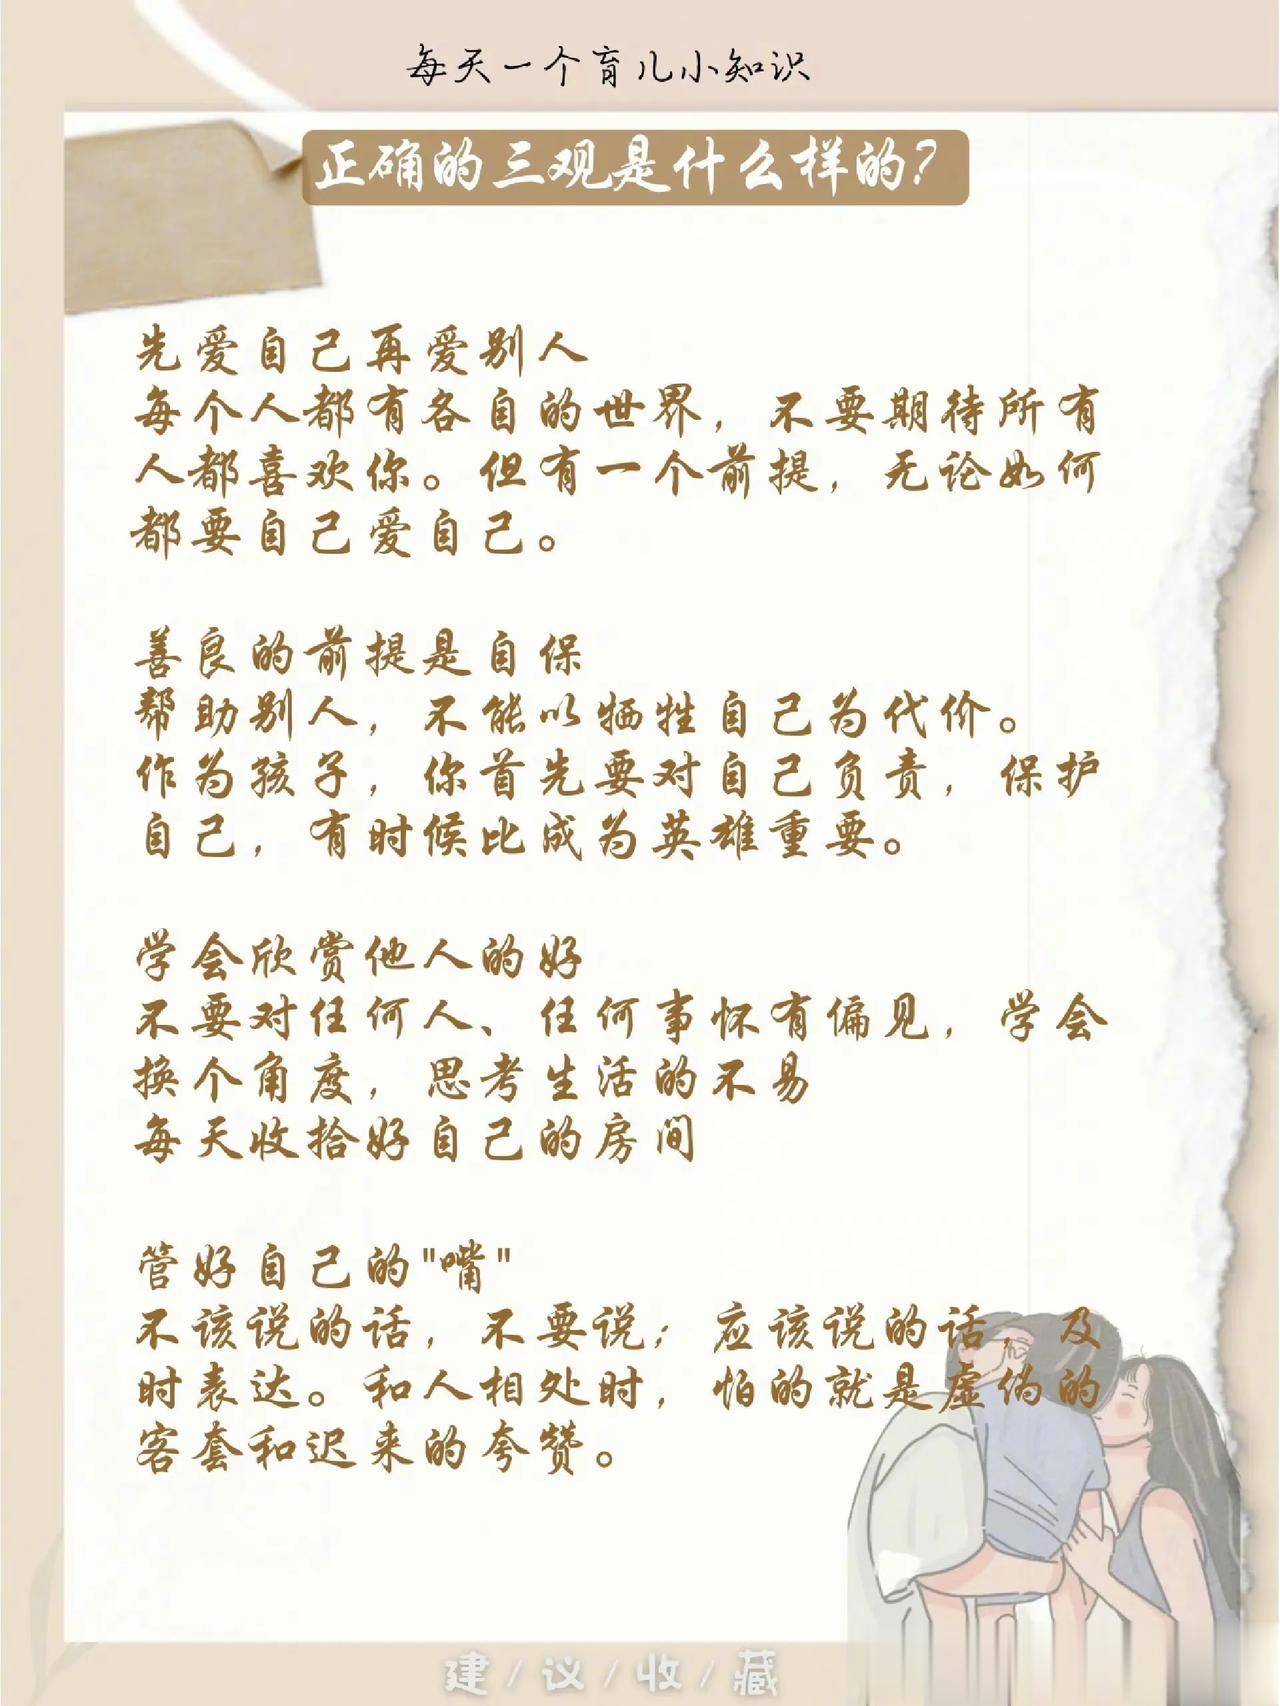 每天一个育儿小知识
正确的三观是什么样的?
先爱自己再爱别人
每个人都有各自的世界，不要期待所有
人都喜欢你。但有一个前提，无论如何
都要自己爱自己。
善良的前提是自保
帮助别人，不能以牺牲自己为代价。
作为孩子，你首先要对自己负责，保护
自己，有时候比成为英雄重要。
学会欣赏他人的好
不要对任何人、任何事怀有偏见，学会
换个角度，思考生活的不易
每天收拾好自己的房间
管好自己的"嘴"
不该说的话，不要说；应该说的话，及
时表达。和人相处时，怕的就是虚伪的
客套和迟来的夸赞。
建/议/收/藏